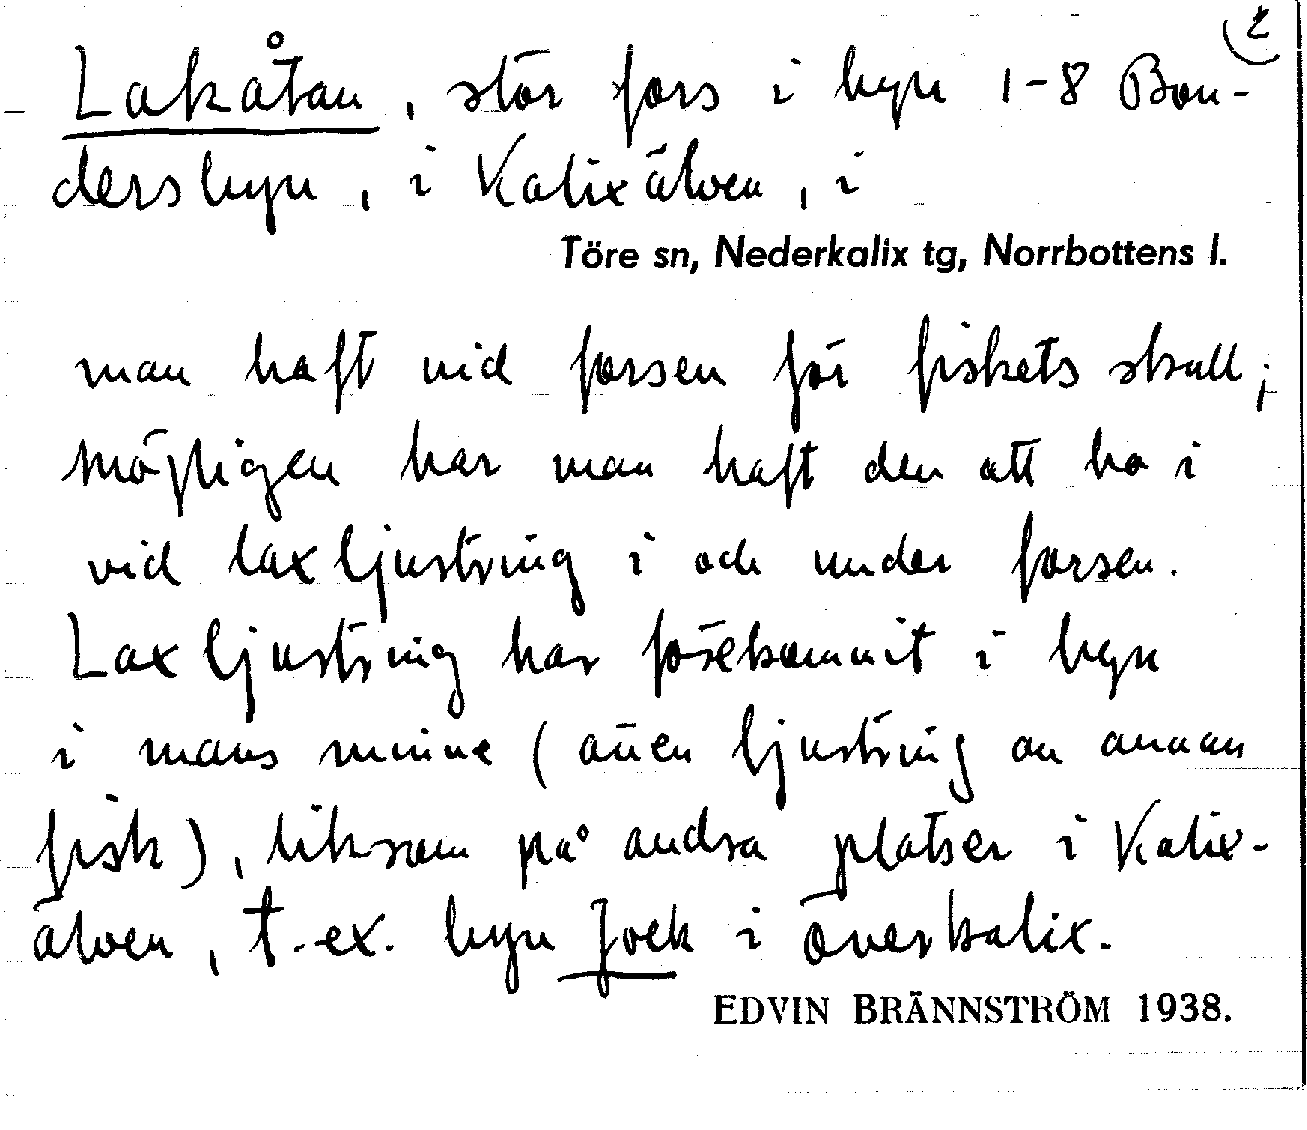 2
Lakåtan, stor fors i byn 1-8 Bon-
dersbyn, i Kalixälven, i
Töre sn, Nederkalix tg, Norrbottens l.
man haft vid forsen för fiskets skull;
möjligen har man haft den att ha i
vid laxljustring i och under forsen.
Laxljustring har förekommit i byn
i mans minne (även ljustring av annan
fisk), liksom på andra platser i Kalix-
älven, t.ex. byn Jock i överkalix.
EDVIN BRÄNNSTRÖM 1938.